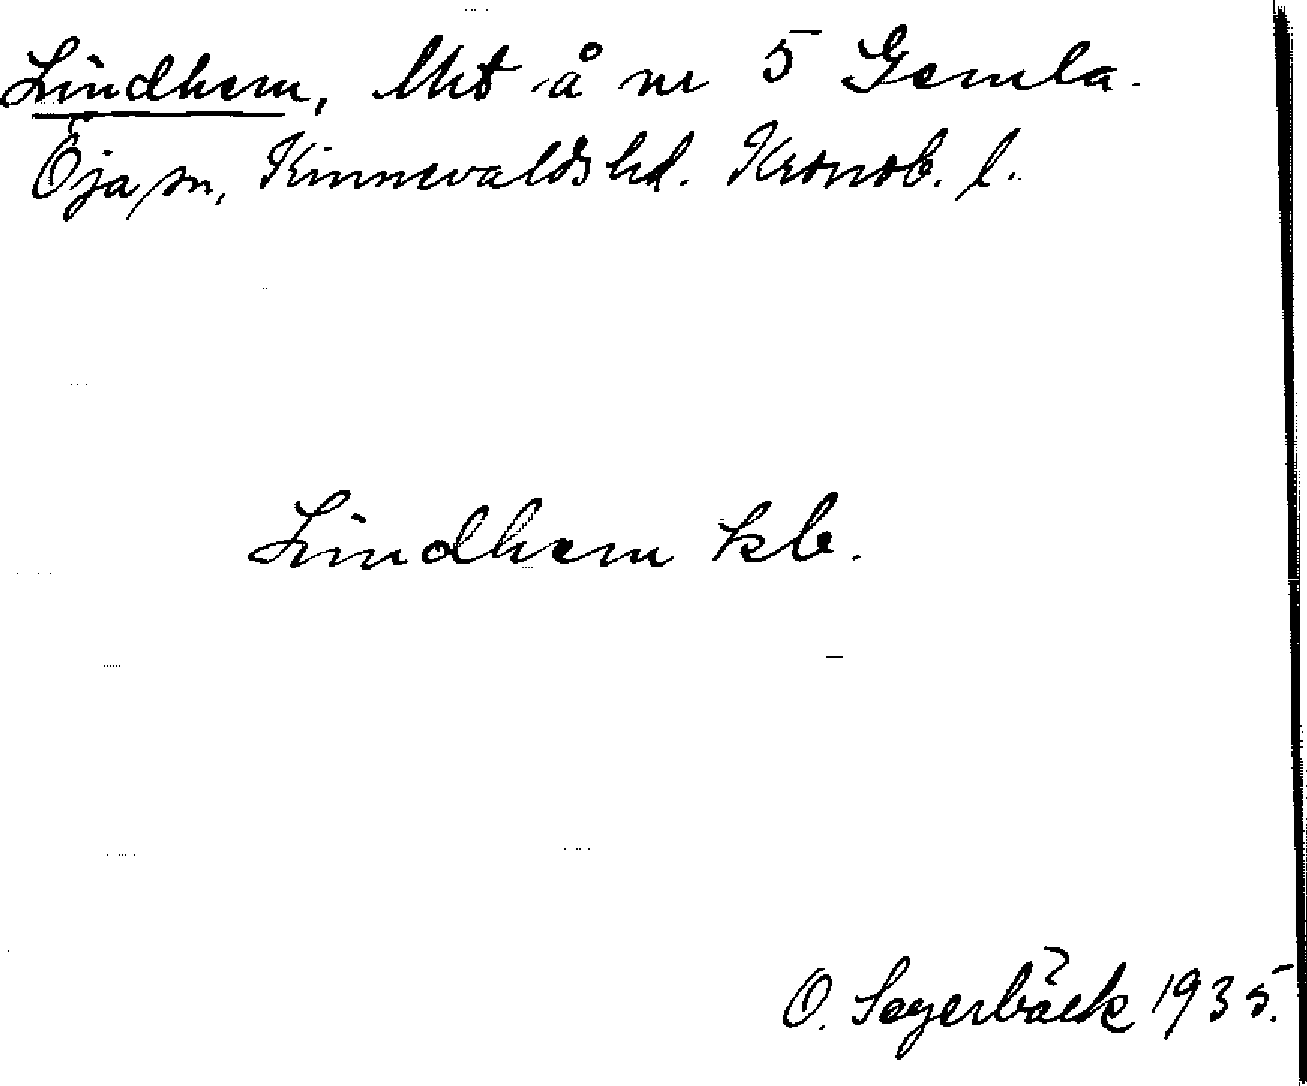 Lindhem, lht å nr 5 Gemla.
Öja sn, Kinnevalds hd. Kronob. l.
Lindhem kb.
O. Segerbäck 1935.